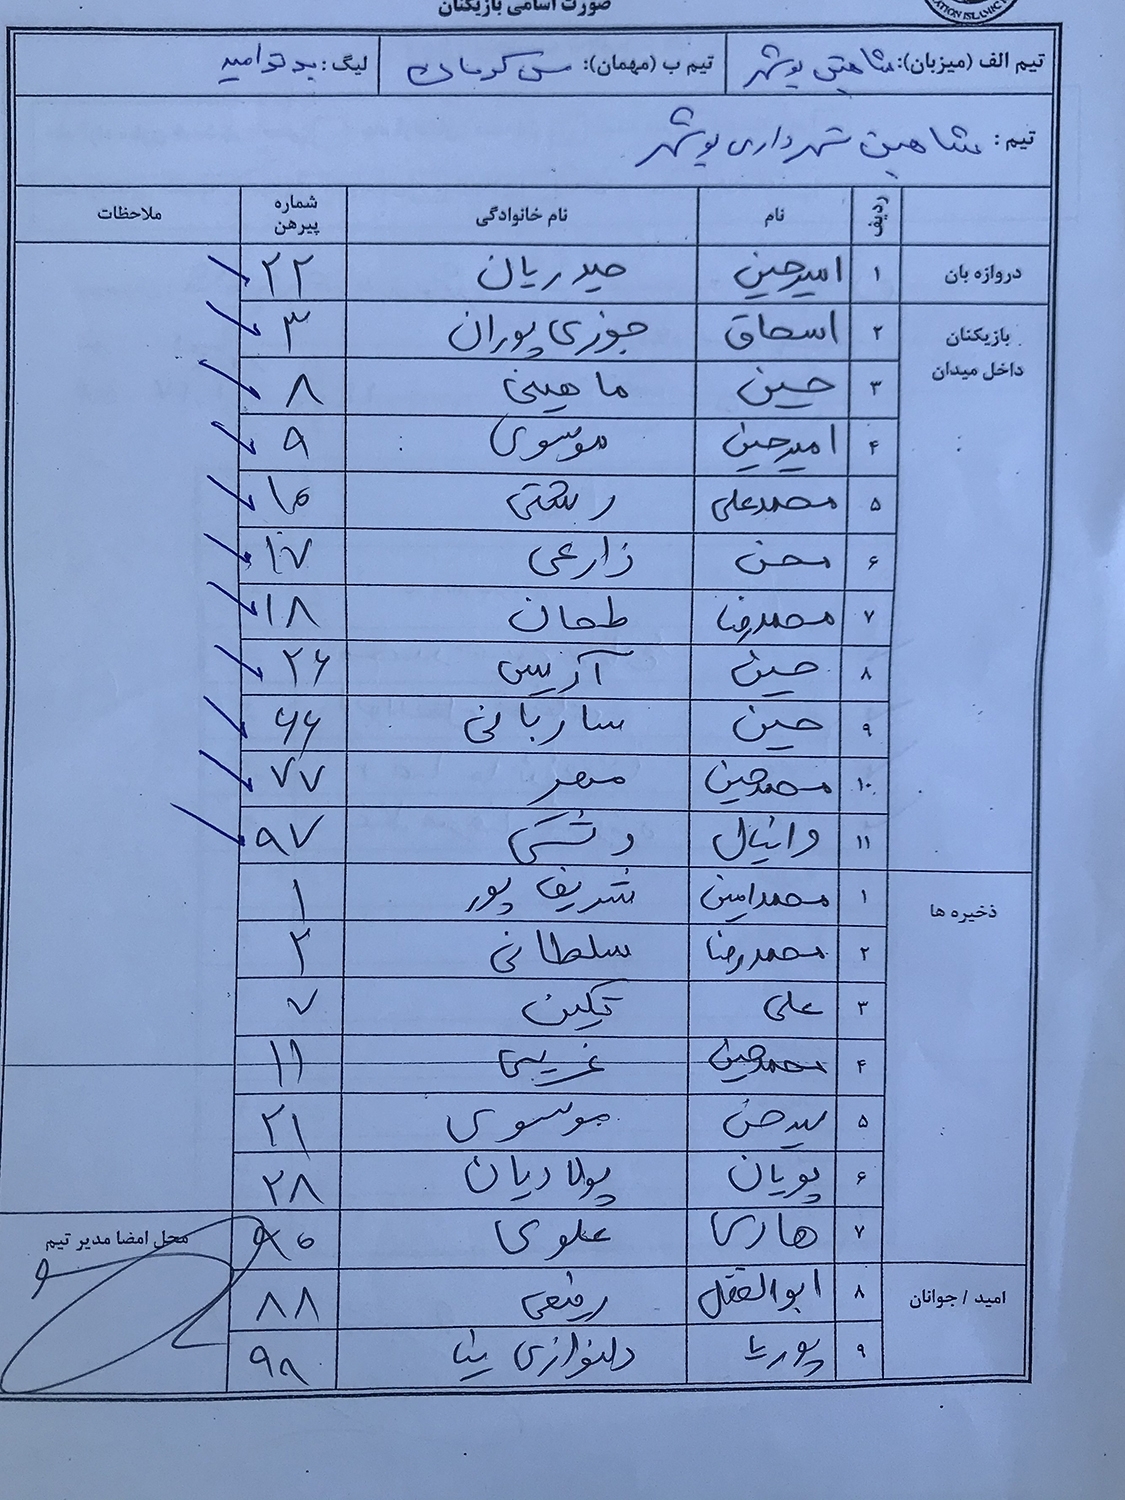 صورت اسامی بازیکنان
تیم الف (میزبان): شاهین بوشهر تیم ب (مهمان): مس کرمان لیگ:
تیم: شاهین شهرداری بوشهر
ردیف نام نام خانوادگی شماره پیرهن ملاحظات
دروازه بان ۱ امیرحسین حیدریان ۲۲
بازیکنان داخل میدان ۲ اسحاق جوزی پوران ۳
۳ حسین ماهینی ۸
۴ امیرحسین موسوی ۹
۵ محمدعلی رشتی
۶ محسن زارعی ۱۷
۷ محمدرضا طحان ۱۸
۸ حسین ۲۶
۹ حسین ساربانی ۶۶
۱۰ محمدحسین مهر ۷۷
۱۱ دانیال دشتی ۹۷
ذخیره ها ۱ محمدامین شریف پور ۱
۲ محمدرضا سلطانی ۲
۳ علی تکین ۷
۴ محمدحسین غریبی ۱۱
۵ سیدحسن موسوی ۲۱
۶ پویان پولادیان ۲۸
۷ هادی علوی
محل امضا مدیر تیم
امید / جوانان ۸ ابوالفضل رفیعی ۸۸
۹ پوریا دلنوازی ۹۸